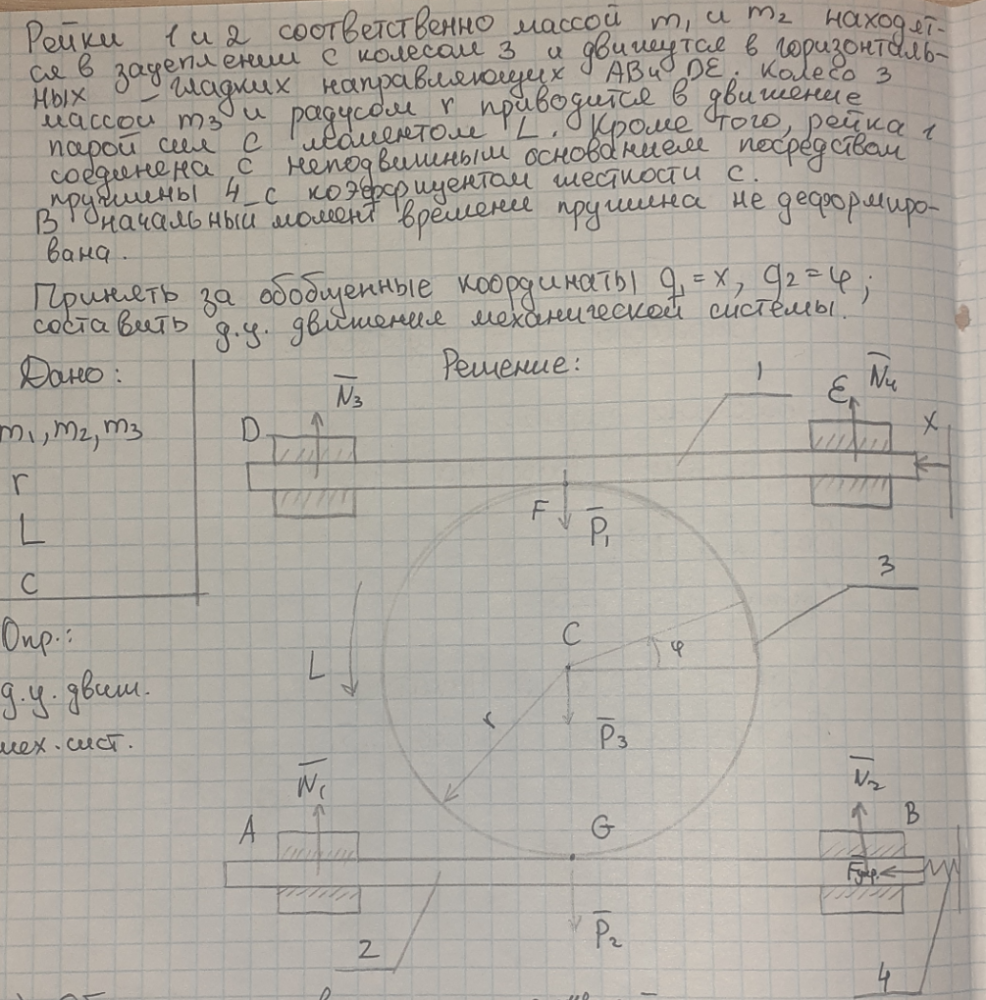 Рейки 1 и 2 соответственно массой m₁ и m₂ находят-
ся в зацеплении с колесом 3 и движутся в горизонталь-
ных гладких направляющих AB и DE. Колесо 3
массой m₃ и радусом r приводится в движение
парой сил с моментом L. Кроме того, рейка 1
соединена с неподвижным основанием посредством
пружины 4 с коэффициентом жесткости c.
В начальный момент времени пружина не деформиро-
вана.
Принять за обобщенные координаты q₁ = x, q₂ = φ;
составить д.у. движения механической системы.
Дано:
m₁, m₂, m₃
r
L
c
Опр.:
д.у. движ.
мех. сист.
Решение:
N̅₃
1
E
N̅₄
D
x
F
P̅₁
3
C
φ
L
r
P̅₃
N̅₁
N̅₂
A
G
B
Fупр.
P̅₂
2
4